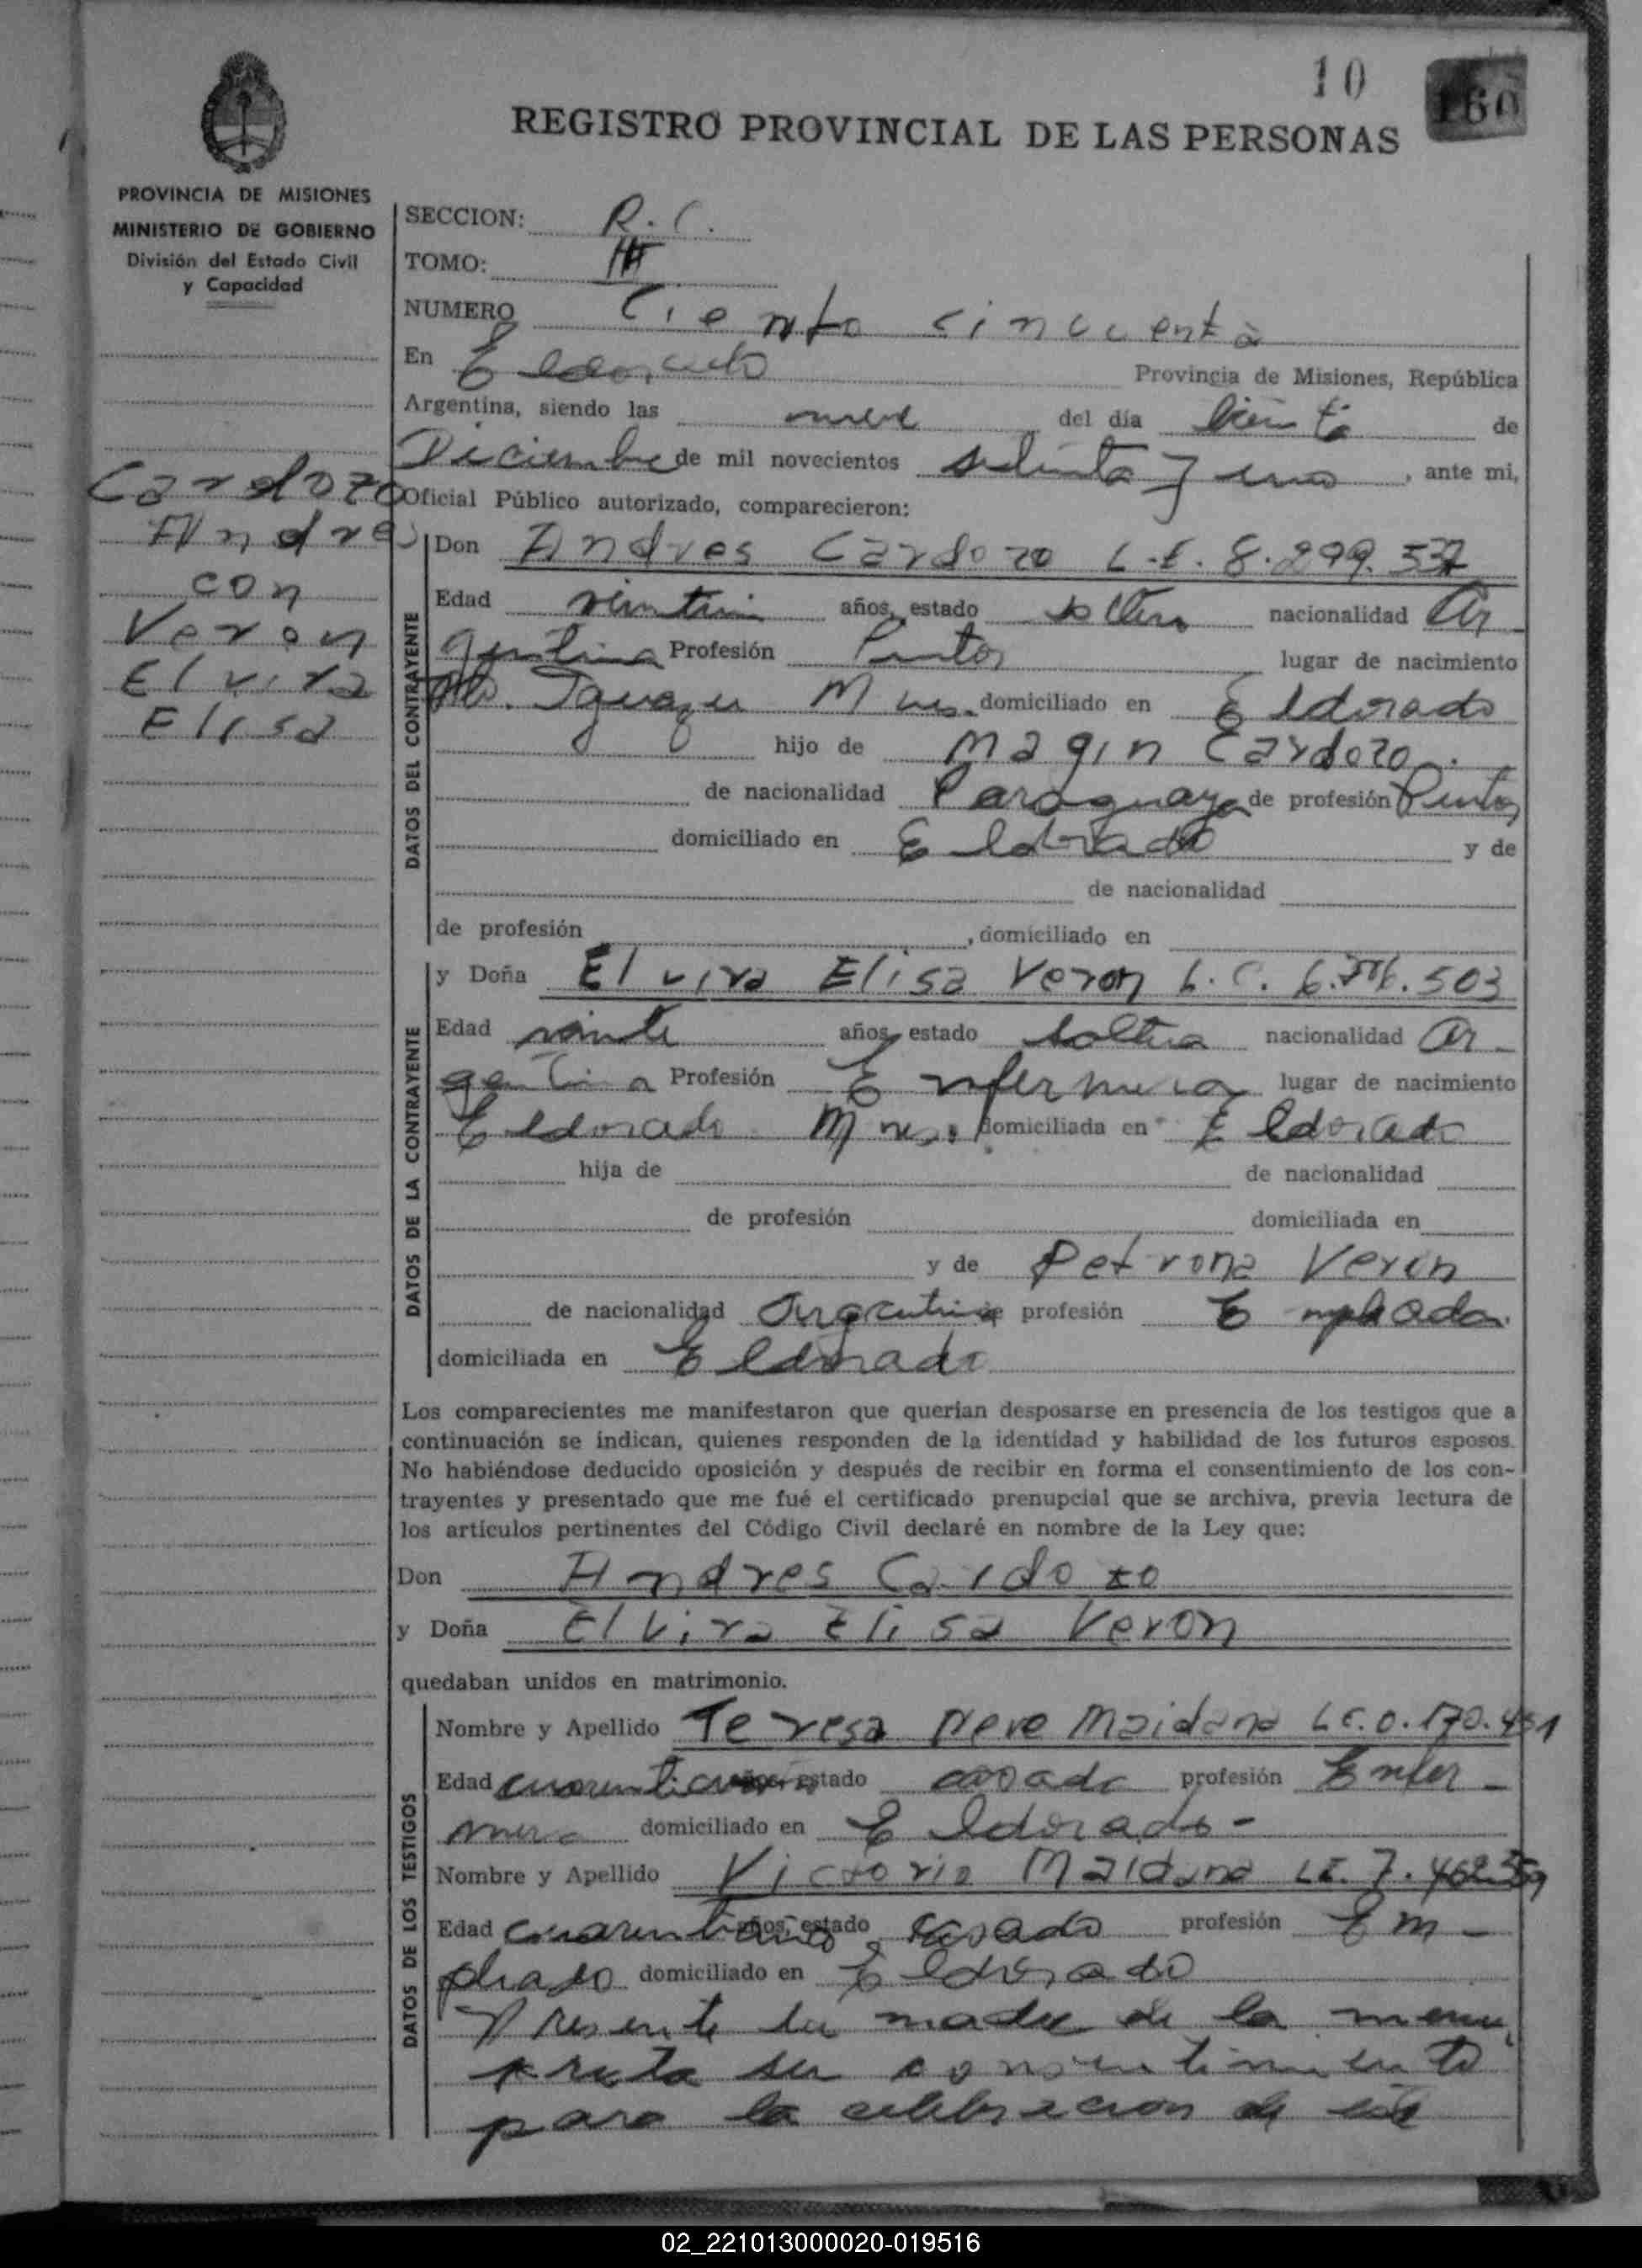 10
160
REGISTRO PROVINCIAL DE LAS PERSONAS
PROVINCIA DE MISIONES
MINISTERIO DE GOBIERNO
División del Estado Civil
y Capacidad
Cardozo
Andres
con
Veron
Elvira
Elisa
SECCION: R. C.
TOMO: III
NUMERO Ciento cincuenta
En Eldorado Provincia de Misiones, República
Argentina, siendo las nueve del día treinta de
Diciembre de mil novecientos setenta y uno, ante mi,
Oficial Público autorizado, comparecieron:
DATOS DEL CONTRAYENTE
Don Andres Cardozo L.E. 8.299.537
Edad años, estado soltero nacionalidad Ar
gentina Profesión Pintor lugar de nacimiento
Pto. Iguazu Mnes. domiciliado en Eldorado
hijo de Magin Cardozo.
de nacionalidad Paraguaya de profesión Pintor
domiciliado en Eldorado y de
de nacionalidad
de profesión , domiciliado en
DATOS DE LA CONTRAYENTE
y Doña Elvira Elisa Veron L.C. 503
Edad veinte años, estado soltera nacionalidad Ar-
gentina Profesión Enfermera lugar de nacimiento
Eldorado Mnes. domiciliada en Eldorado
hija de de nacionalidad
de profesión domiciliada en
y de Petrona Veron
de nacionalidad Argentina profesión Empleada
domiciliada en Eldorado
Los comparecientes me manifestaron que querían desposarse en presencia de los testigos que a
continuación se indican, quienes responden de la identidad y habilidad de los futuros esposos.
No habiéndose deducido oposición y después de recibir en forma el consentimiento de los con-
trayentes y presentado que me fué el certificado prenupcial que se archiva, previa lectura de
los artículos pertinentes del Código Civil declaré en nombre de la Ley que:
Don Andres Cardozo
y Doña Elvira Elisa Veron
quedaban unidos en matrimonio.
DATOS DE LOS TESTIGOS
Nombre y Apellido Teresa Neve Maidana
Edad estado casada profesión Enfer-
mera domiciliado en Eldorado-
Nombre y Apellido Maidana
Edad años, estado casado profesión Em-
pleado domiciliado en Eldorado
Presente la madre de la menor
presta su consentimiento
para la celebracion de este
02_221013000020-019516